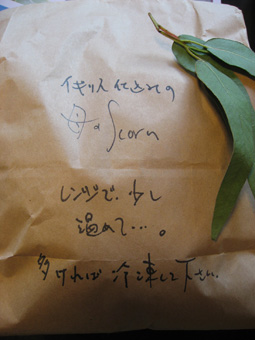 イギリス仕込みの
母のScorn
レンジで、少し
温めて…。
多ければ冷凍して下さい